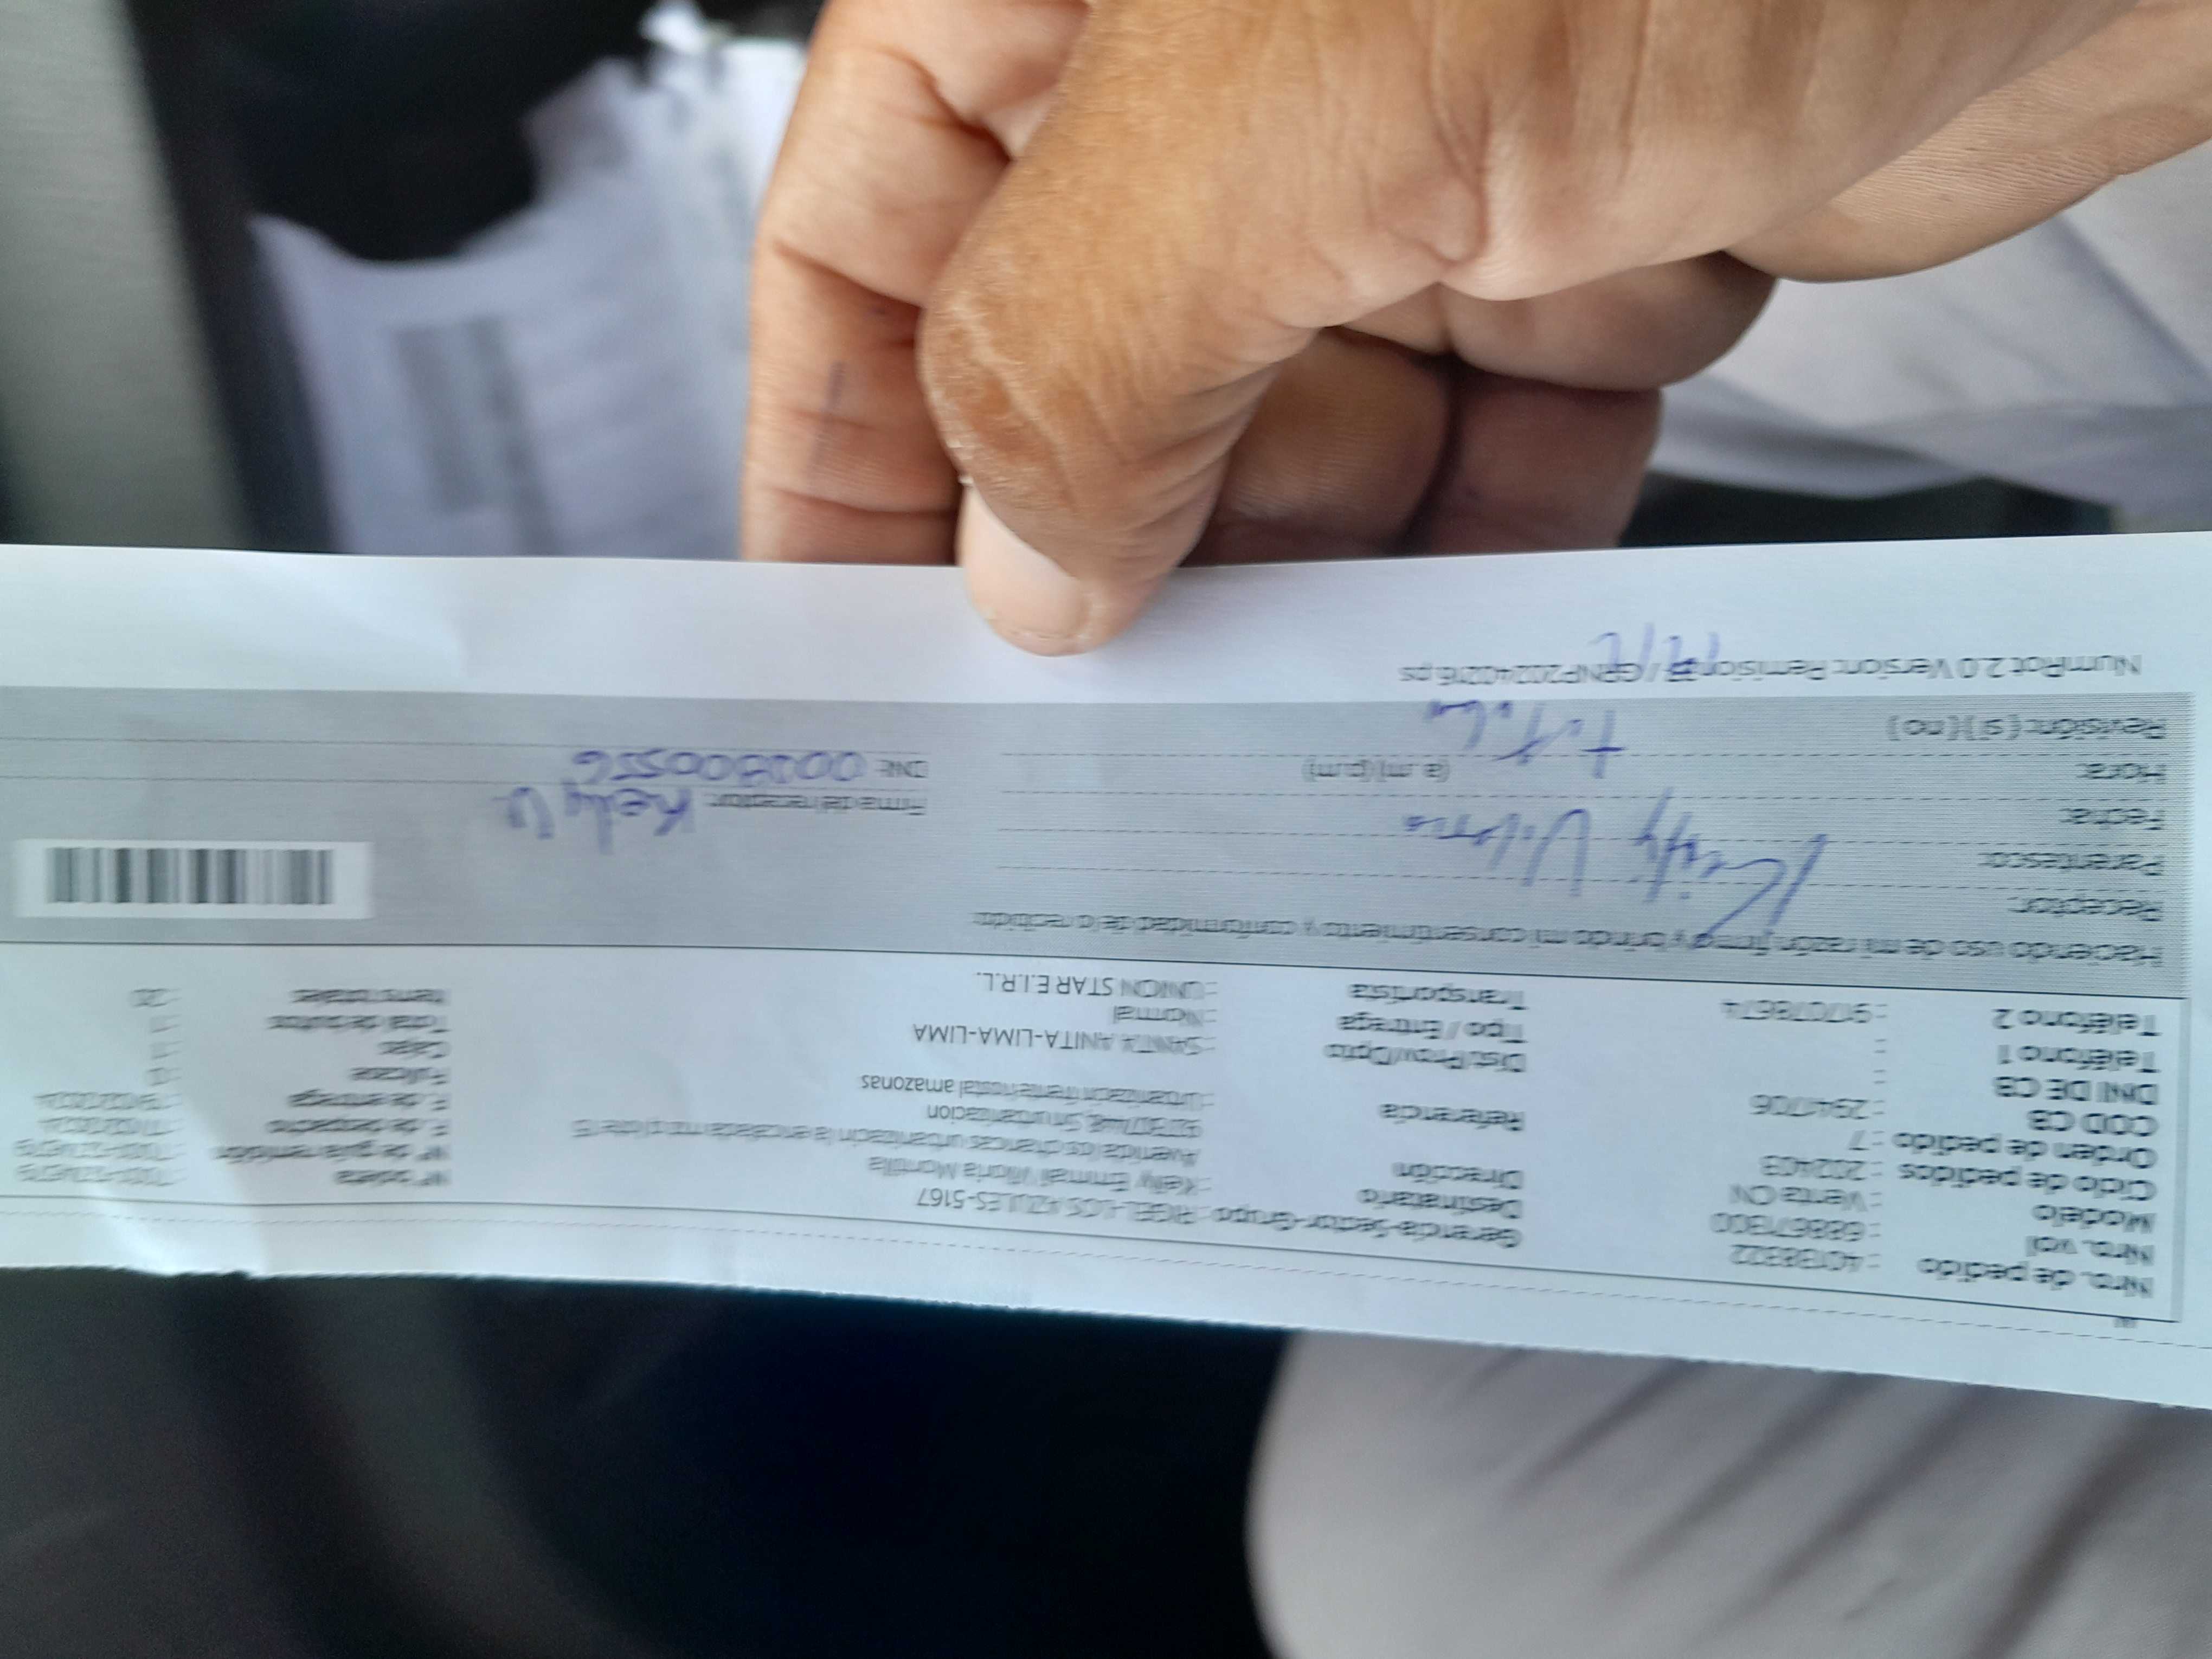 Nro. de pedido : 40138322
Nro. vol : 688671300
Modelo : Venta CN
Ciclo de pedidos : 202403
Orden de pedido : 7
COD CB : 2941706
DNI DE CB :
Teléfono 1 :
Teléfono 2 : 917078674
Gerencia-Sector-Grupo : RIGEL-LOS AZULES-5167
Destinatario : Kelly Emmali Viloria Montilla
Dirección : Avenida los chancas urbanizacin la encalada mz
Referencia : Urbanizacin frente hostal amazonas
Dist/Prov/Dpto : SANTA ANITA-LIMA-LIMA
Tipo / Entrega : Normal
Transportista : UNION STAR E.I.R.L.
N° boleta
N° de guía remisión
F. de despacho
F. de entrega
Fullcase
Cajas : 1
Total de bultos : 1
Items totales : 20
Haciendo uso de mi razón firmo y brindo mi consentimiento y conformidad de lo recibido:
Receptor: Kelly Viloria
Parentesco:
Fecha:
Hora: (a.m) (p.m)
Revisión: (si) (no)
Titular
Firma del receptor: Kelly V.
DNI: 002800556
NumRot 2.0 Version: / GRNP20240216.ps